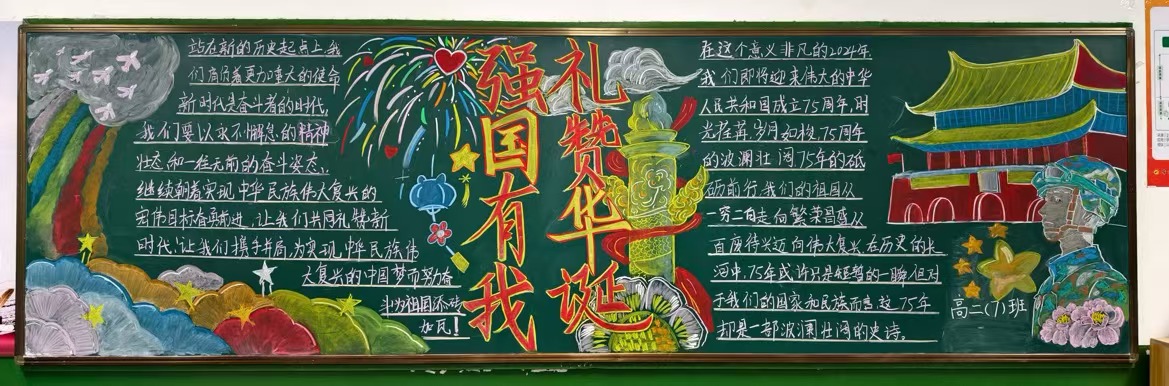 礼赞华诞
强国有我
站在新的历史起点上,我
们肩负着更加重大的使命
新时代是奋斗者的时代,
我们要以永不懈怠的精神
状态和一往无前的奋斗姿态,
继续朝着实现中华民族伟大复兴的
宏伟目标奋勇前进,让我们共同礼赞新
时代,让我们携手并肩,为实现中华民族伟
大复兴的中国梦而努力奋
斗为祖国添砖
加瓦!
在这个意义非凡的2024年
我们即将迎来伟大的中华
人民共和国成立75周年,时
光荏苒,岁月如梭,75周年
的波澜壮阔75年的砥
砺前行,我们的祖国从
一穷二白走向繁荣昌盛从
百废待兴迈向伟大复兴在历史的长
河中,75年或许只是短暂的一瞬但对
于我们的国家和民族而言这75年
却是一部波澜壮阔的史诗。
高二(7)班